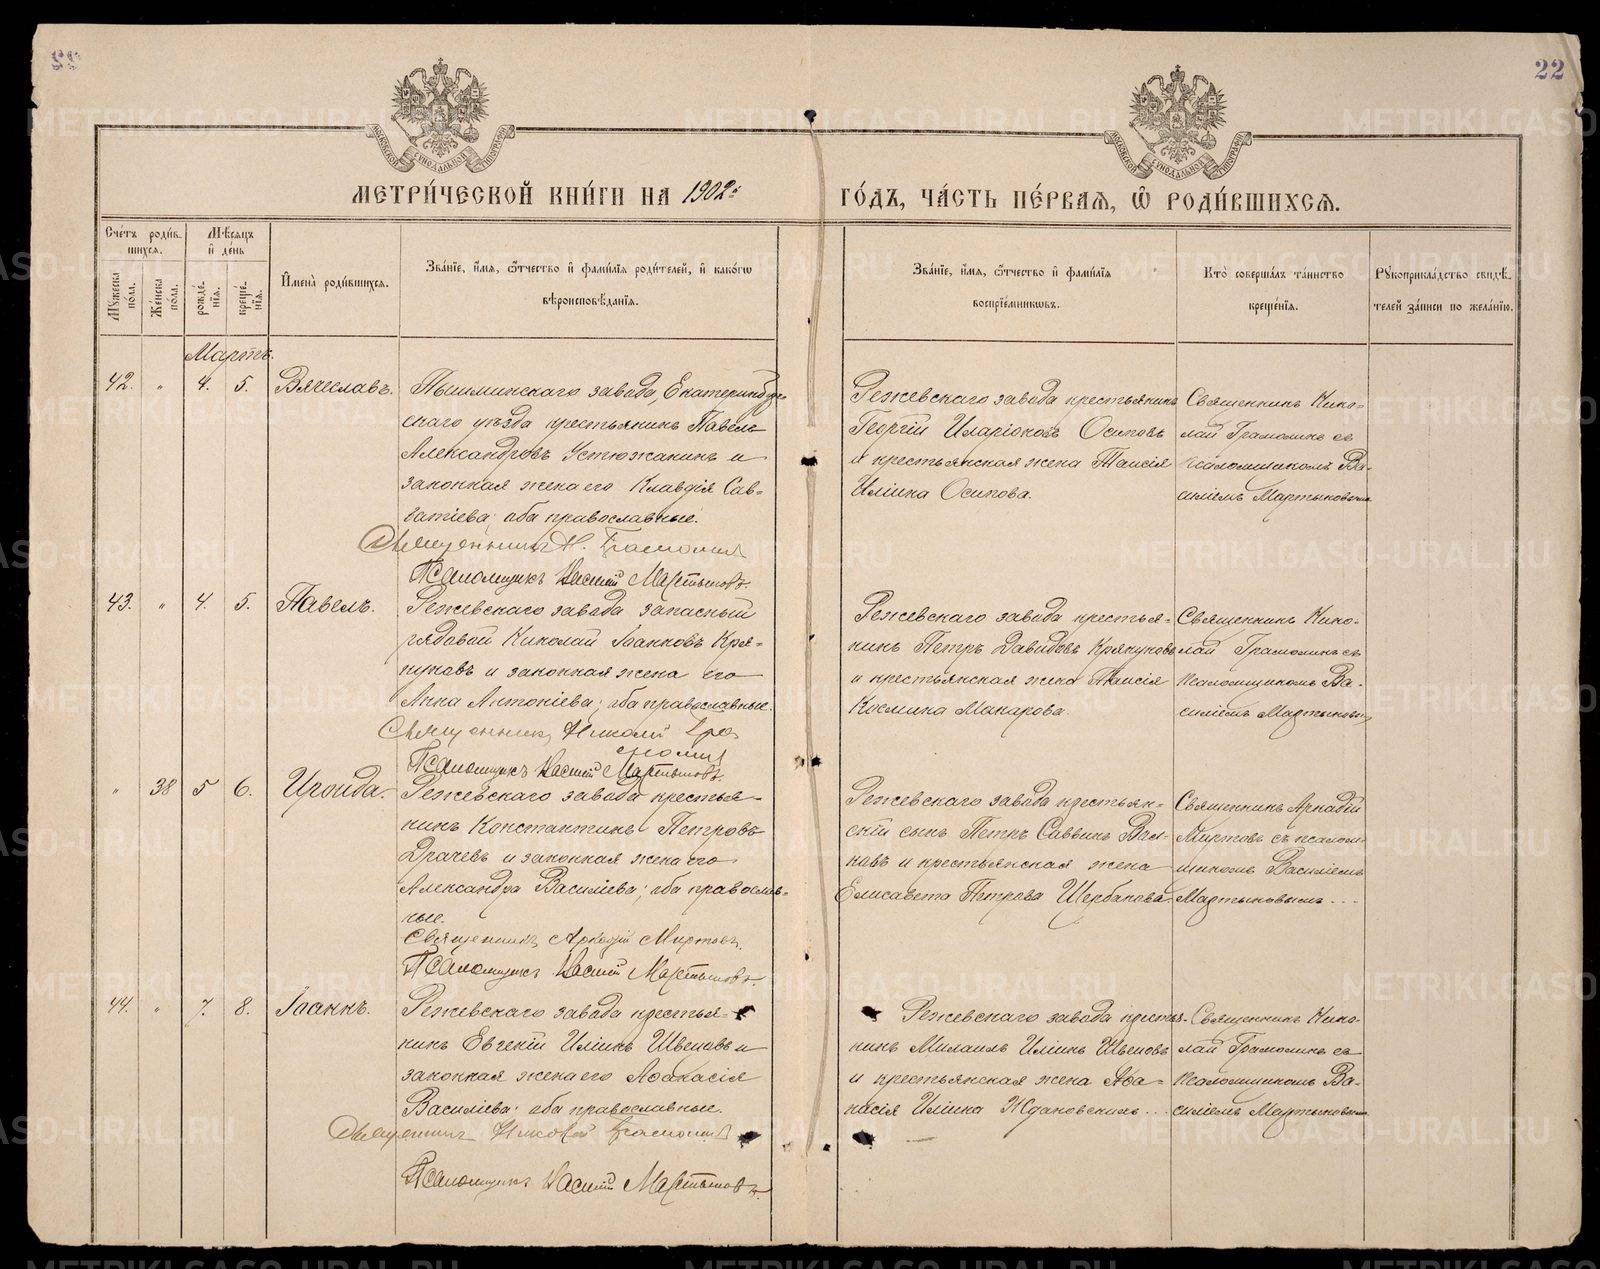 22
МЕТРИ́ЧЕСКОЙ КНИ́ГИ НА 1902й ГО́ДЪ, ЧА́СТЬ ПЕ́РВАѦ, Ѡ҆ РОДИ́ВШИХСѦ.
МОСКОВСКОЙ СѴНОДАЛЬНОЙ ТИПОГРАФІИ
МОСКОВСКОЙ СѴНОДАЛЬНОЙ ТИПОГРАФІИ
Сче́тъ роди́в-
шихсѧ.
Мꙋ́жеска по́ла.
Же́нска по́ла.
Мѣ́сѧцъ
и҆ де́нь
рожде́-
нїѧ.
креще́-
нїѧ.
И҆мена̀ роди́вшихсѧ.
Зва́нїе, и҆́мѧ, ѻ҆́тчество и҆ фами́лїѧ роди́телей, и҆ како́гѡ
вѣроисповѣ́данїѧ.
Зва́нїе, и҆́мѧ, ѻ҆́тчество и҆ фами́лїѧ
воспрїе́мникѡвъ.
Кто̀ соверша́лъ та́инство
креще́нїѧ.
Рꙋкоприкла́дство свидѣ́-
телей за́писи по жела́нїю.
Мартъ.
42. " 4. 5. Вячеславъ.
Пышминскаго завода, Екатеринбург-
скаго уѣзда крестьянинъ Павелъ
Александровъ Устюжанинъ и
законная жена его Клавдія Сав-
ватіева; оба православные.
Священникъ Н. Грамолинъ
Псаломщикъ Василій Мартыновъ.
Режевскаго завода крестьянинъ
Георгій Иларіоновъ Осиповъ
и крестьянская жена Таисія
Иліина Осипова.
Священникъ Нико-
лай Грамолинъ съ
псаломщикомъ Ва-
силіемъ Мартыновымъ
43. " 4. 5. Павелъ.
Режевскаго завода запасный
рядовой Николай Іоанновъ Кря-
куновъ и законная жена его
Анна Антоніева; оба православные.
Священникъ Николай Гра-
молинъ
Псаломщикъ Василій Мартыновъ.
Режевскаго завода крестья-
нинъ Петръ Давидовъ Крякуновъ
и крестьянская жена Таисія
Космина Макарова.
Священникъ Нико-
лай Грамолинъ съ
псаломщикомъ Ва-
силіемъ Мартыновымъ
" 38 5 6. Ираида.
Режевскаго завода крестья-
нинъ Константинъ Петровъ
Драчевъ и законная жена его
Александра Василіева; оба православ-
ные.
Священникъ Аркадій Миртовъ.
Псаломщикъ Василій Мартыновъ.
Режевскаго завода крестьян-
скій сынъ Петръ Саввинъ
и крестьянская жена
Елисавета Петрова Щербакова.
Священникъ Аркадій
Миртовъ съ псалом-
щикомъ Василіемъ
Мартыновымъ...
44. " 7. 8. Іоаннъ.
Режевскаго завода крестья-
нинъ Евгеній Иліинъ Швецовъ и
законная жена его Аѳанасія
Василіева; оба православные.
Священникъ Николай Грамолинъ
Псаломщикъ Василій Мартыновъ.
Режевскаго завода крестья-
нинъ Михаилъ Иліинъ Швецовъ
и крестьянская жена Аѳа-
насія Иліина Ждановскихъ...
Священникъ Нико-
лай Грамолинъ съ
псаломщикомъ Ва-
силіемъ Мартыновымъ
METRIKI.GASO-URAL.RU